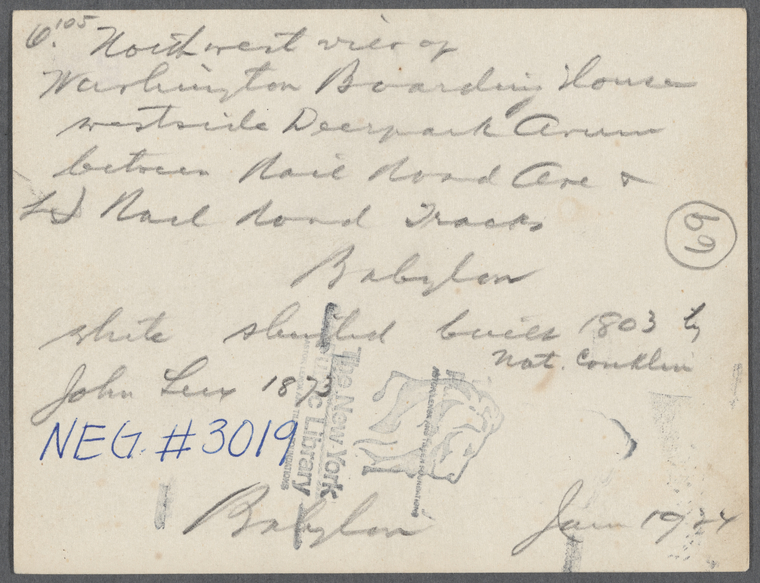 6.105 Northwest view of
Washington Boarding House
westside Deerpark Avenue
between Rail Road Ave &
L I Rail Road Tracks
69
Babylon
white shuttled built 1803 by
Nat. Conklin
John Lux 1873
NEG. #3019
The New York
Public Library
Babylon Jan 1924